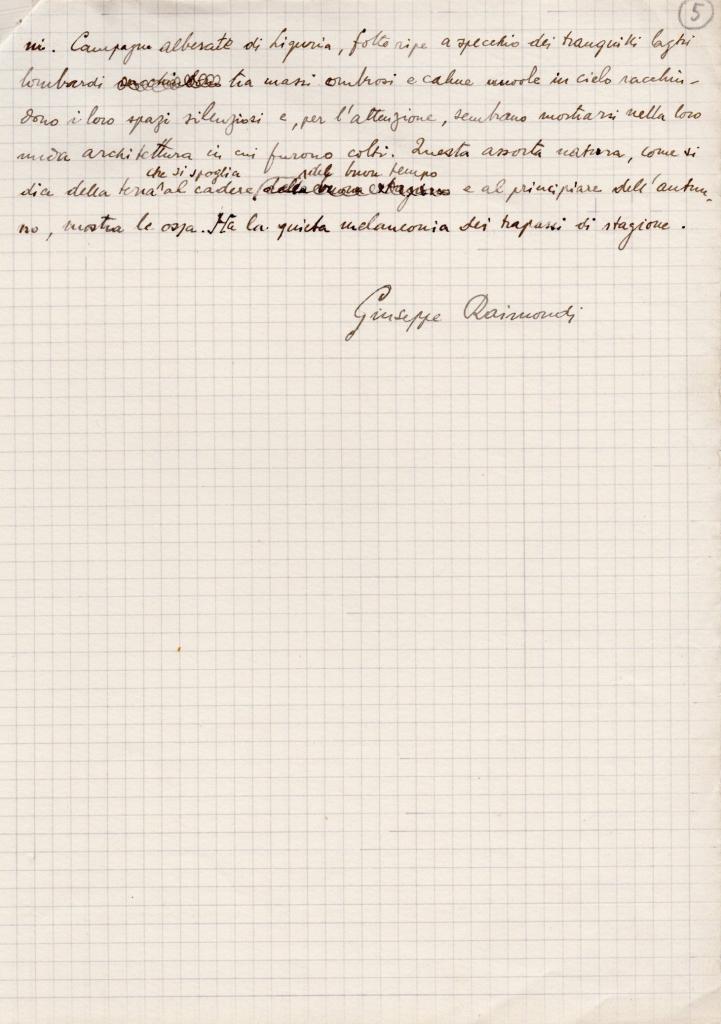 5
ni. Campagne alberate di Liguria, folte ripe a specchio dei tranquilli laghi
lombardi tra massi ombrosi e calme nuvole in cielo racchiu-
dono i loro spazi silenziosi e, per l'attenzione, sembrano mostrarsi nella loro
nuda architettura in cui furono colti. Questa assorta natura, come si
che si spoglia del buon tempo
dice della terra al cadere della buona stagione e al principiare dell'autun-
no, mostra le ossa. Ha la quieta melanconia dei trapassi di stagione.
Giuseppe Raimondi